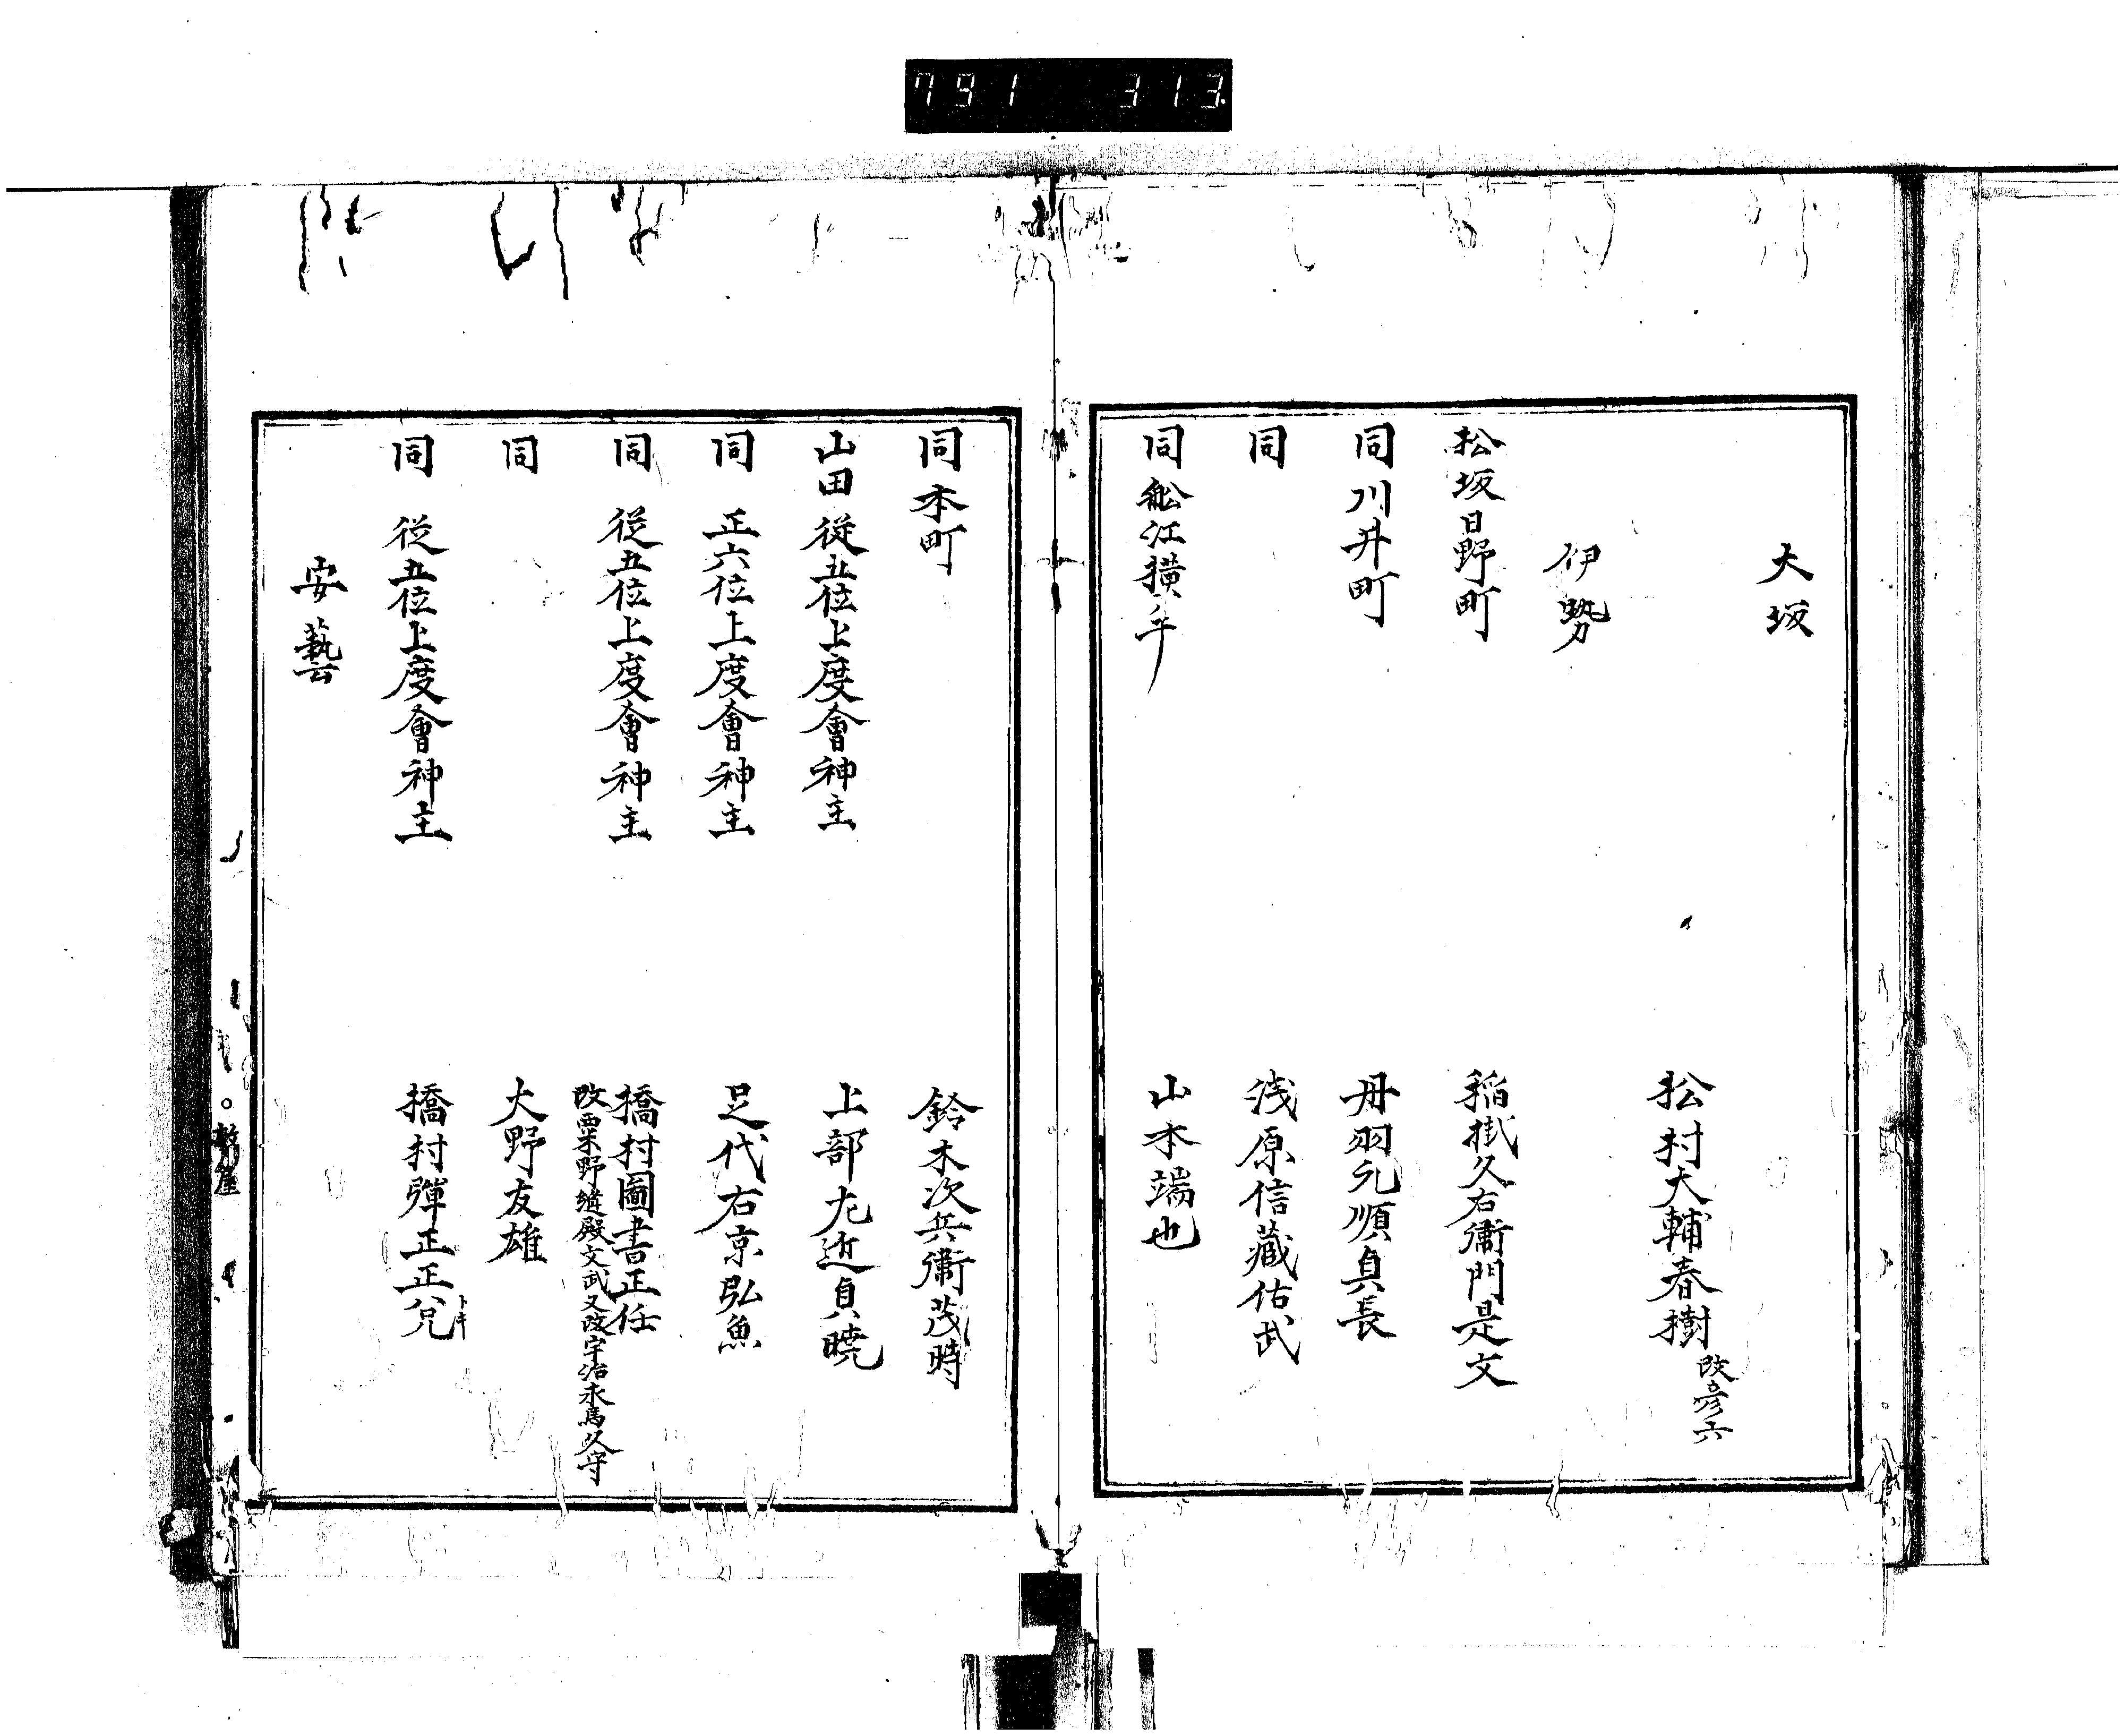 791 313
大坂
松村大輔春樹 改彦六
伊勢
松坂日野町 稲掛久右衞門是文
同川井町 丹羽元順貞長
同 浅原信藏佑武
同舩江横平 山本端也
同本町 鈴木次兵衞茂時
山田 従五位上度會神主 上部九近貞暁
同 正六位上度會神主 足代右京弘魚
同 従五位上度會神主 橋村圖書正任
改粟野縫殿文武又改宇治求馬久守
同 大野友雄
同 従五位上度會神主 橋村彈正正兌 トキ
安藝
鈴屋